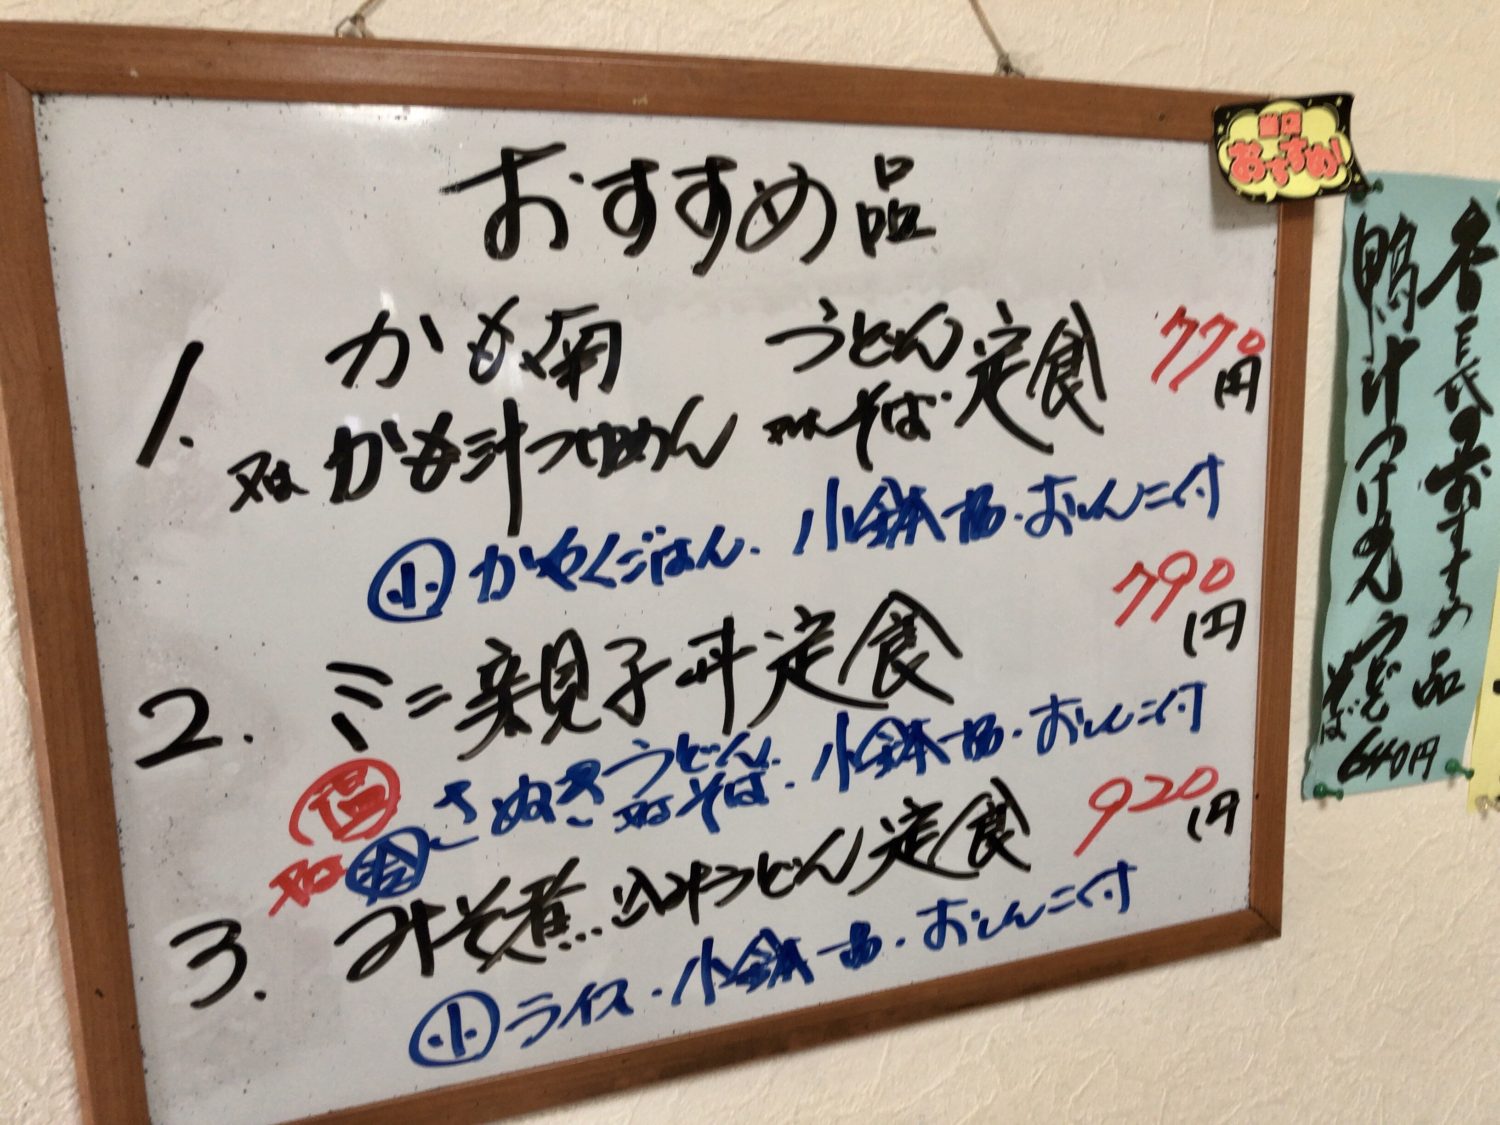 おすすめ品
当店
おすすめ!
1. かも南 うどん 定食 770円
又は かも汁つけめん 又は そば
小 かやくごはん・小鉢一品・おしんこ付
2. ミニ親子丼定食 790円
温 さぬきうどん
又は 冷 又は そば・小鉢一品・おしんこ付
3. みそ煮込みうどん定食 920円
小 ライス・小鉢一品・おしんこ付
店長おすすめ品
鴨汁つけ
うどん
そば
640円